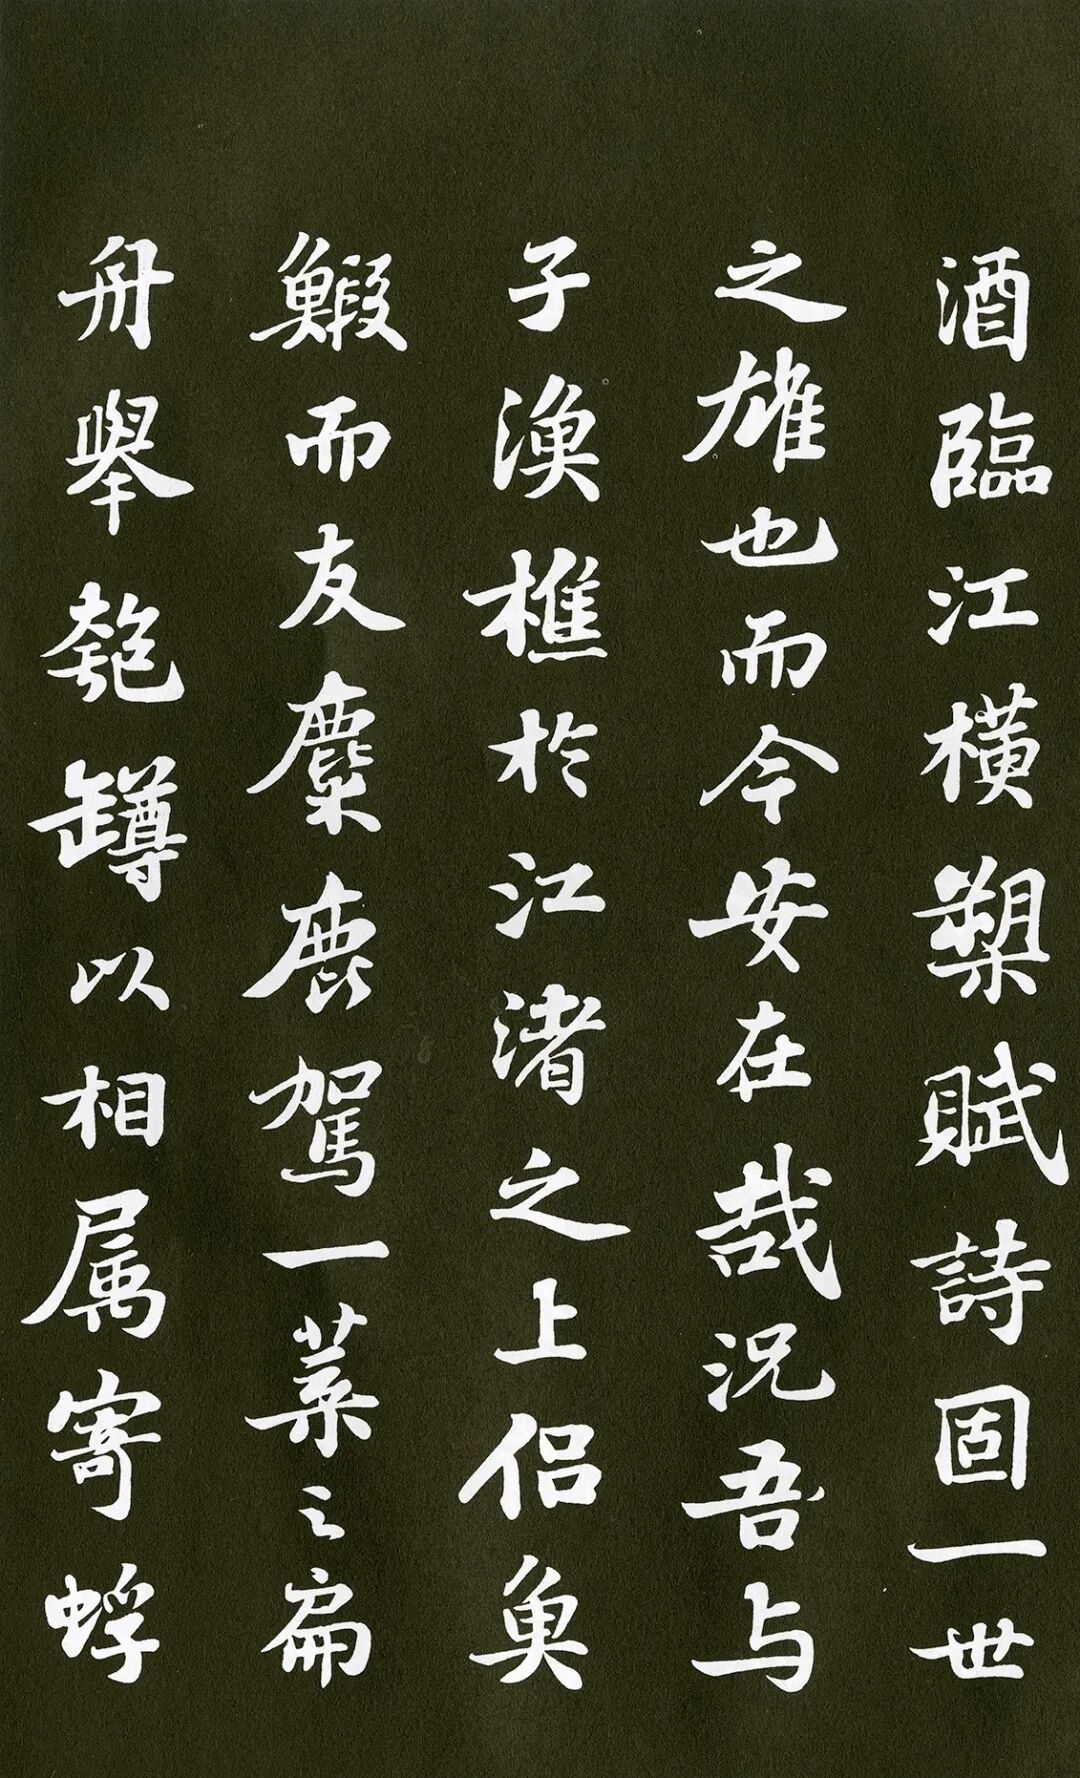 酒臨江橫槊賦詩固一世
之雄也而今安在哉況吾与
子漁樵於江渚之上侶魚
鰕而友麋鹿駕一葉之扁
舟舉匏罇以相属寄蜉